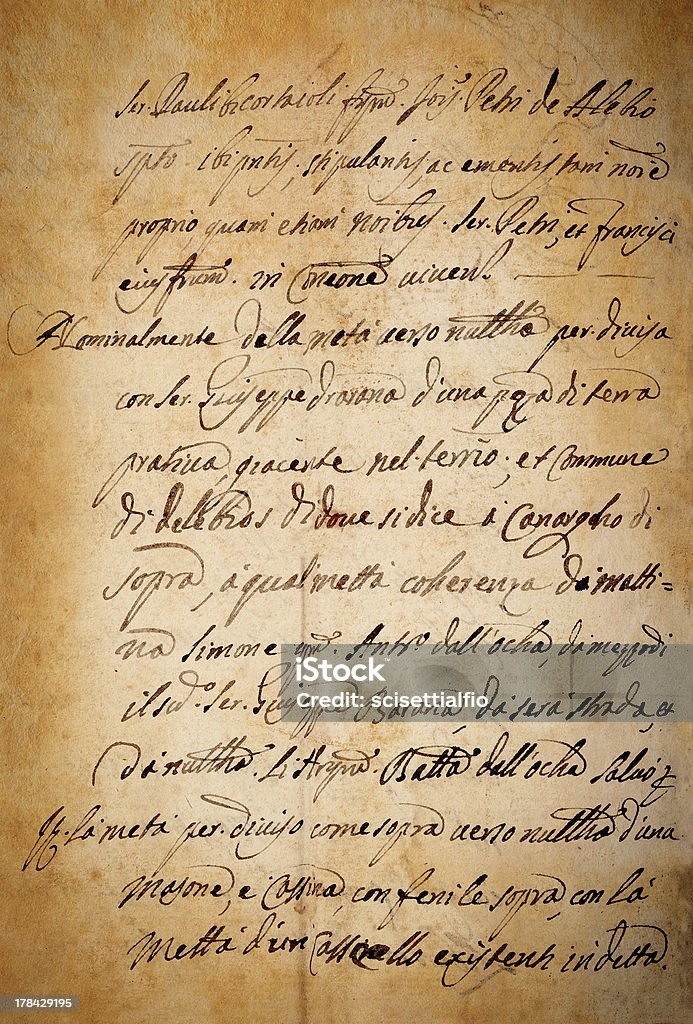 Ser. Pauli bicortaioli qm. Jois. Petri de Alebio
spto. ibi pntis, stipulantis, ac ementis tam noie
proprio, quam etiam noibus Ser. Petri, et francisci
eius frum. in Coneone viven.
Nominalmente della metà verso nullhà per. diviso
con Ser. Giuseppe d'una pezza di terra
prativa, giacente nel terrio, et Commune
di delebios di doue si dice à Canargho di
sopra, à qual mettà coherenza dà matti=
na simone qm. Antro. dall'ocha, da mezzodi
il sud.o Ser. Giuseppe, dà serà strada, et
dà nullhà. Li Battà dall'ocha salvo
It. là metà per. diviso come soprà verso nullhà d'una
Masone, e Cassina, con fenile soprà, con là
Mettà d'un Cassinello existenti in detta.
iStock
Credit: scisettialfio
178429195